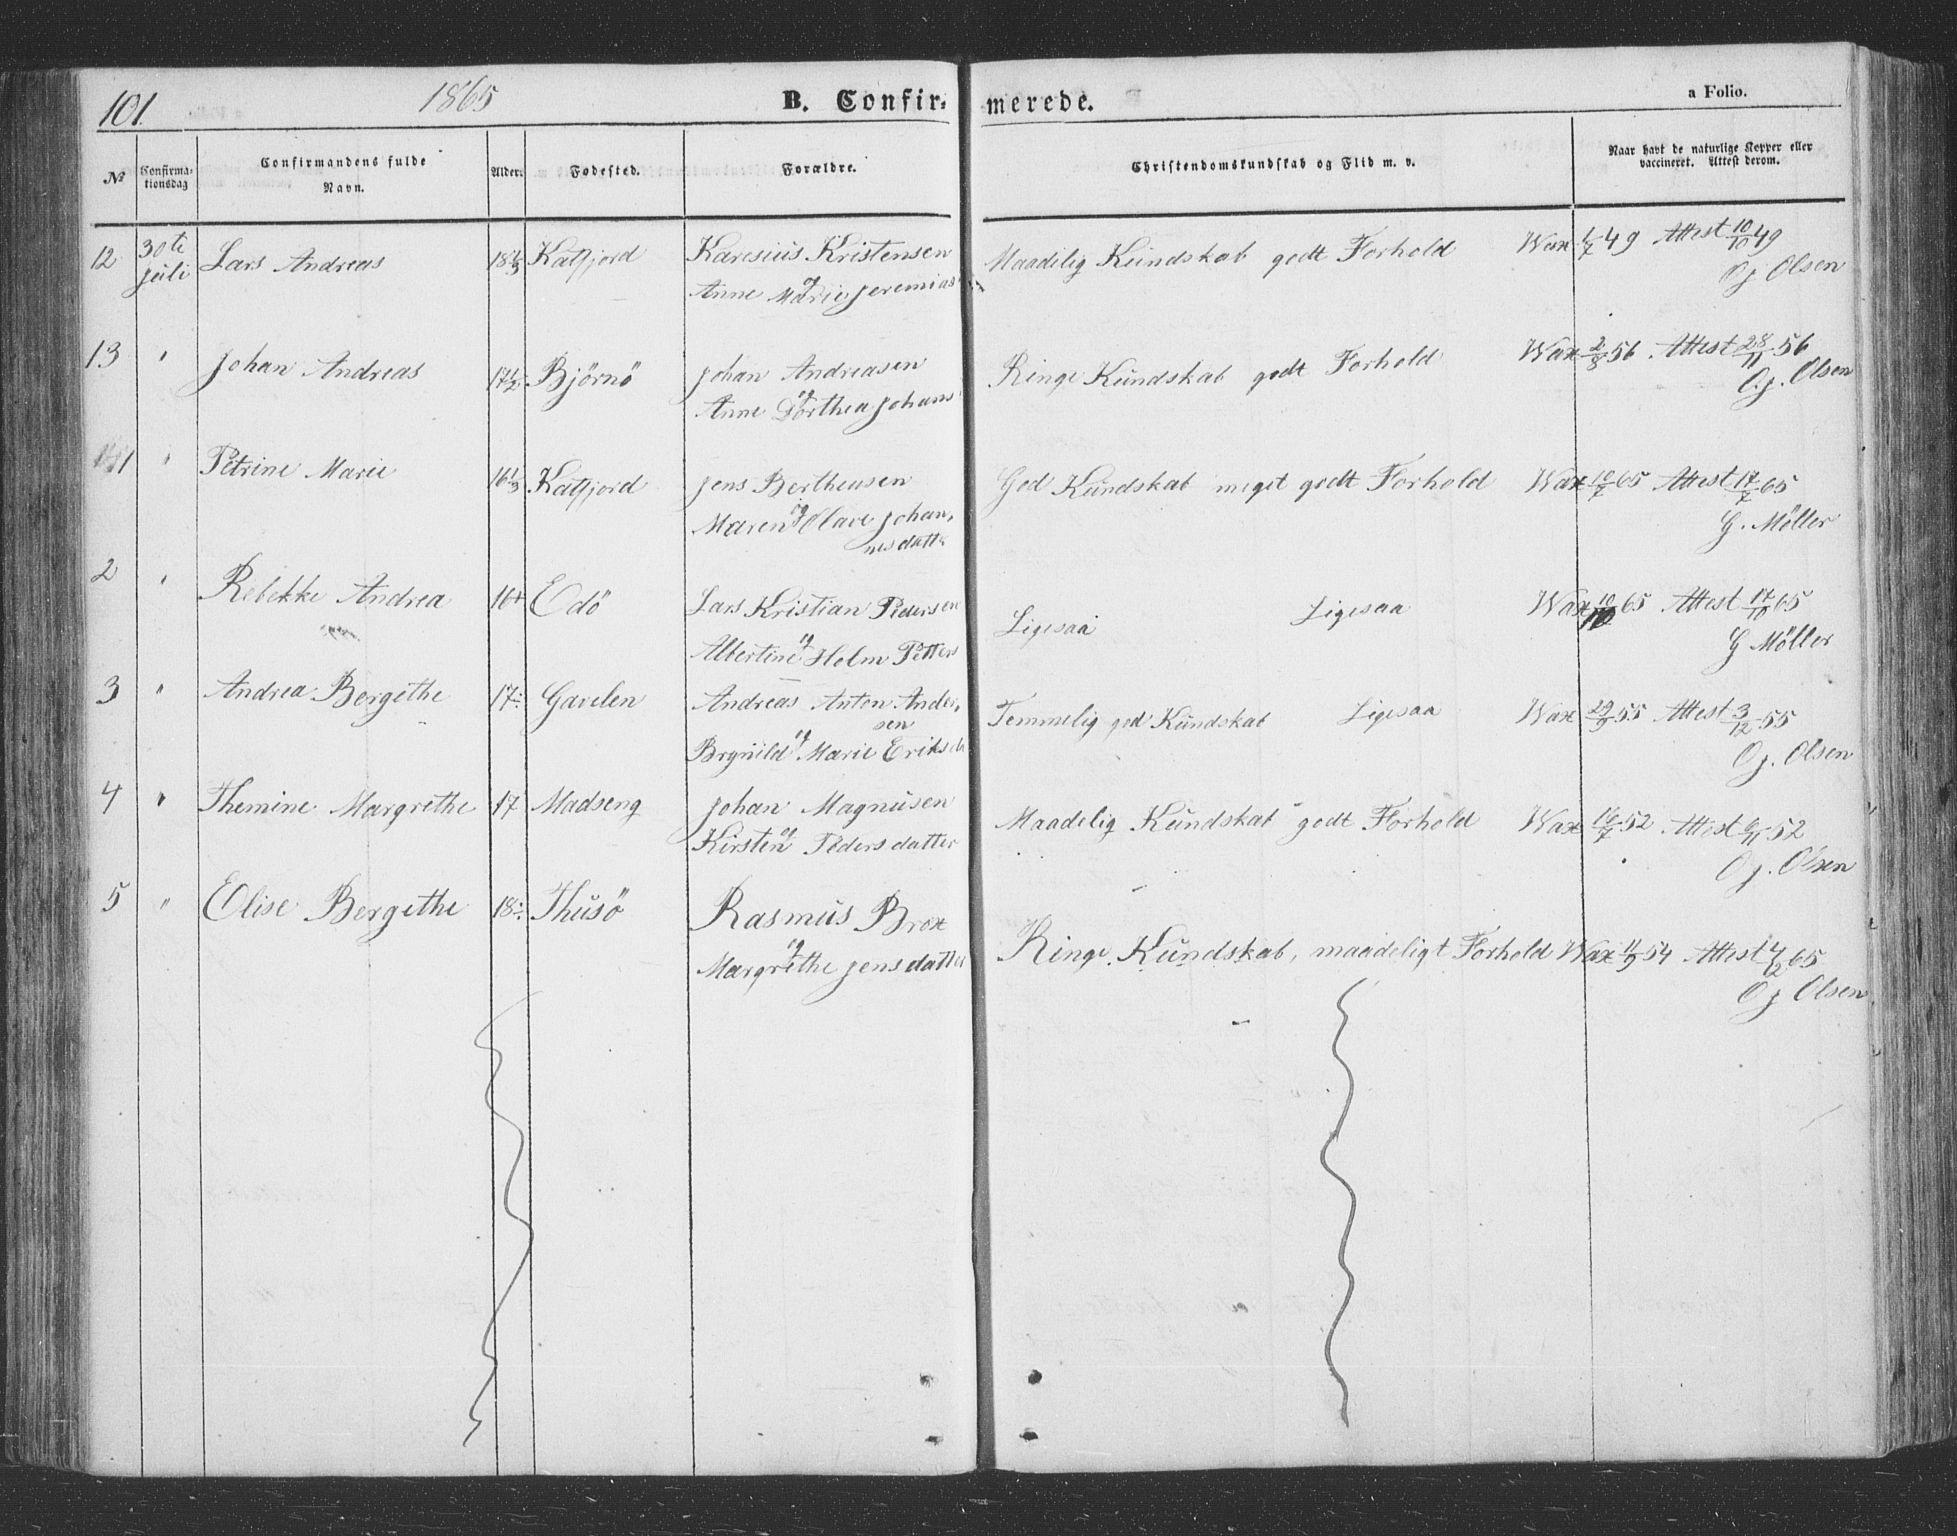 101.
1865
B. Confir-
merede.
a Folio.
№
Confirma-
tionsdag
Confirmandens fulde
Navn.
Alder.
Fødested.
Forældre.
Christendomskundskab og Flid m. v.
Naar havt de naturlige Kopper eller
vaccineret. Attest derom.
12 30te Juli Lars Andreas 18 1/3 Katfjord Karesius Kristensen
og
Anne Marie Jeremias
Maadelig Kundskab godt Forhold Wax 1/7 49 Attest 10/10 49
O J Olsen
13 " Johan Andreas 17 1/2 Bjørnö Johan Andreasen
og
Anne Dorthea Johans
Ringe Kundskab godt Forhold Wax 2/8 56 Attest 28/11 56
O. J. Olsen
1 " Petrine Marie 16 1/3 Katfjord Jens Bertheusen
og
Maren Olave Johan,
nesdatte
God Kundskab meget godt Forhold Wax 10/7 65 Attest 17/7 65
G. Möller
2 " Rebekke Andrea 16 Edö Lars Kristian Pedersen
og
Albertine Holm Petters
Ligesaa Ligesaa Wax 10/10 65 Attest 17/10 65
G Möller
3 " Andrea Bergithe 17 Gavelen Andreas Anton Ander,
sen
og
Brynild Marie Eriksda
Temmelig god Kundskab Ligesaa Wax 29/9 55 Attest 3/12 55
O J. Olsen
4 " Themine Margrethe 17 Madseng Johan Magnusen
og
Kirsten Pedersdatter
Maadelig Kundskab godt Forhold Wax 16/7 52 Attest 6/11 52
O J. Olsen
5 " Elise Bergithe 18 Thusö Rasmus Brox
og
Margrethe Jensdatter
Ringe Kundskab, maadeligt Forhold Wax 11/9 54 Attest 4/12 65
O J Olsen